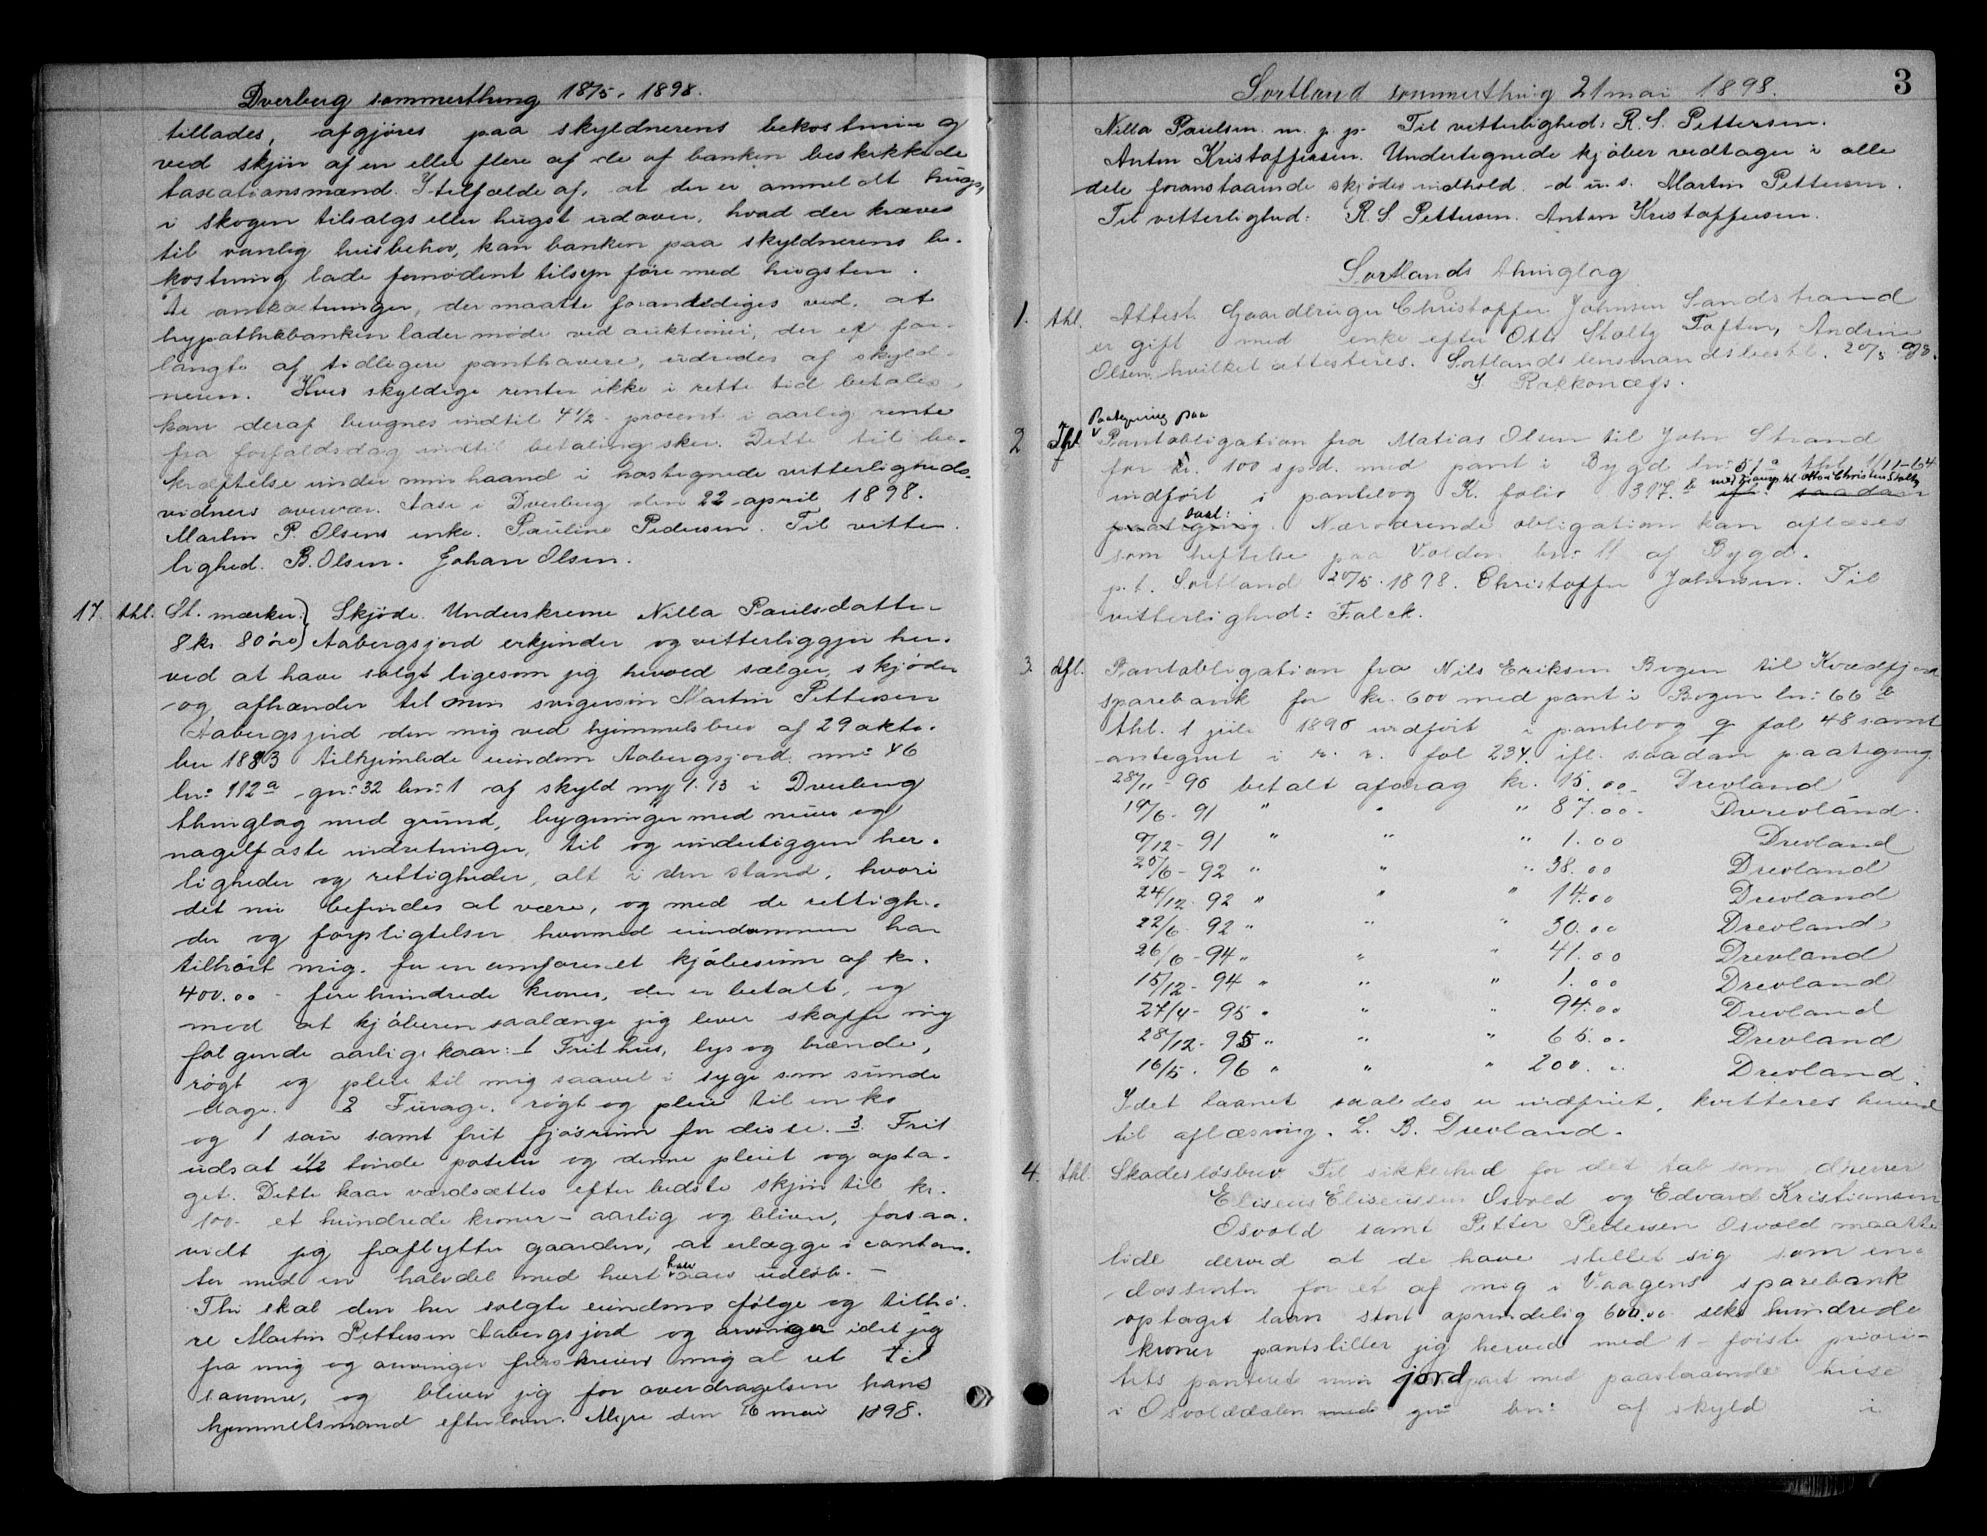 Dverberg sommerthing 18/5. 1898.
tillades, afgjøres paa skyldnerens bekostning og
ved skjøn af en eller flere af de af banken beskikkede
taxationsmænd. I tilfælde af, at der er anmeldt hugst
i skogen tilsalgs eller hugst udover, hvad der kræves
til vanlig husbehov, kan banken paa skyldnerens be-
kostning lade fornødent tilsyn føre med hugsten.
De omkostninger, der maatte foranlediges ved, at
hypothekbanken lader møde ved auktioner, der er for-
langte af tidligere panthavere, udredes af skyld-
neren. Hvis skyldige renter ikke i rette tid betales,
kan deraf beregnes indtil 4 1/2 procent i aarlig rente
fra forfaldsdag indtil betaling sker. Dette til be-
kræftelse under min haand i hostegnede vitterligheds-
vidners overvær. Aase i Dverberg den 22 april 1898.
Martin P. Olsens enke. Pauline Pedersen. Til vitter-
lighed. B. Olsen. Johan Olsen.
17. thl. St. mærker: Skjøde. Underskrevne Nilla Paulsdatter
8 kr 80 øre) Aabergsjord erkjender og vitterliggjør her-
ved at have solgt ligesom jeg herved sælger, skjøder
og afhænder til min svigersøn Martin Pettersen
Aabergsjord den mig ved hjemmelsbrev af 29 okto-
ber 1883 tilhjemlede eiendom Aabergsjord mn: 46
ln: 112a gn: 32 bn: 1 af skyld my 1.13 i Dverberg
thinglag med grund, bygninger med mur og
nagelfaste indretninger, til og underliggen her-
ligheder og rettigheder, alt i den stand, hvori
det nu befindes at være, og med de rettighe-
der og forpligtelser hvormed eiendommen har
tilhørt mig, for en omforenet kjøbesum af kr.
400.00 - fire hundrede kroner, der er betalt, og
mod at kjøberen saalænge jeg lever skaffer mig
følgende aarlige kaar: 1 Frit hus, lys og brænde,
røgt og pleie til mig saavel i syge som sunde
dage. 2 Furage, røgt og pleie til en ko
og 1 sau samt frit fjøsrum for disse. 3. Frit
udsat 1/2 tønde poteter og denne pleiet og opta-
get. Dette kaar værdsættes efter bedste skjøn til kr.
100- et hundrede kroner - aarlig og bliver, forsaa-
vidt jeg fraflytter gaarden, at erlægge i contan-
ter med en halvdel med hvert halvaars udløb. -
Thi skal den her solgte eiendom følge og tilhø-
re Martin Pettersen Aabergsjord og arvinger idet jeg
fra mig og arvinger fraskriver mig al ret til
samme, og bliver jeg for overdragelsen hans
hjemmelsmand efter loven. Myre den 16 mai 1898.
Sortland sommerthing 21 mai 1898. 3
Nilla Paulsen m. p. p. Til vitterlighed: R. S. Pettersen.
Anton Kristoffersen. Undertegnede kjøber vedtager i alle
dele foranstaaende skjødes indhold. d. u. s. Martin Pettersen.
Til vitterlighed: R. S. Pettersen. Anton Kristoffersen.
Sortlands thinglag
1. thl. Attest. Gaardbruger Christoffer Johnsen Sandstrand
er gift med enke efter Otto Stoltz Toften, Andrine
Olsen, hvilket attesteres. Sortlands lensmandsbestl. 20/5 98.
I. Rækkenæs.
Paategning paa
2 Thl Pantobligation fra Matias Olsen til John Strand
for kr. 100 spd. med pant i Bygd ln: 51a thl. 1/11-64
indført i pantebog K. folio 317.b med transp. til Otto Christen Stoltz ifl. saadan
paategning saal: Nærværende obligation kan aflæses
som heftelse paa Volden bn: 11 af Bygd.
p.t. Sortland 20/5. 1898. Christoffer Johnsen. Til
vitterlighed: Falck.
3. thl. Pantobligation fra Nils Eriksen Bogen til Kvædfjord
sparebank for kr. 600 med pant i Bogen ln: 66b
thl. 1 juli 1890 indført i pantebog q fol 48 samt
antegnet i r. r. fol 234. ifl. saadan paategning
28/11 - 90 betalt afdrag kr. 15.00 - Drevland
19/6 - 91 " " " 87.00 - Drevland
9/12 - 91 " " " 1.00 Drevland
20/6 - 92 " " " 38.00 Drevland
24/12 - 92 " " " 14.00 Drevland
22/6 92 " " " 30.00 Drevland
26/6 - 94 " " " 41.00 Drevland
15/12 - 94 " " " 1.00 Drevland
27/4 - 95 " " " 94.00 Drevland
28/12 - 95 " " " 65.0. Drevland
16/5. 96 " " " 200. " Drevland.
Idet laanet saaledes er indfriet, kvitteres herved
til aflæsning. L. B. Drevland.
4. thl. Skadesløsbrev Til sikkerhed for det tab som d'herrer
Eliseus Eliseussen Osvold og Edvard Kristiansen
Osvold samt Petter Pedersen Osvold maatte
lide derved at de have stillet sig som en-
dossenter for et af mig i Vaagens sparebank
optaget laan stort oprindelig 600.00 seks hundrede
kroner pantstiller jeg herved med 1 - første priori-
tets panteret min jordpart med paastaaende huse
i Osvolddalen med gn: bn: af skyld i